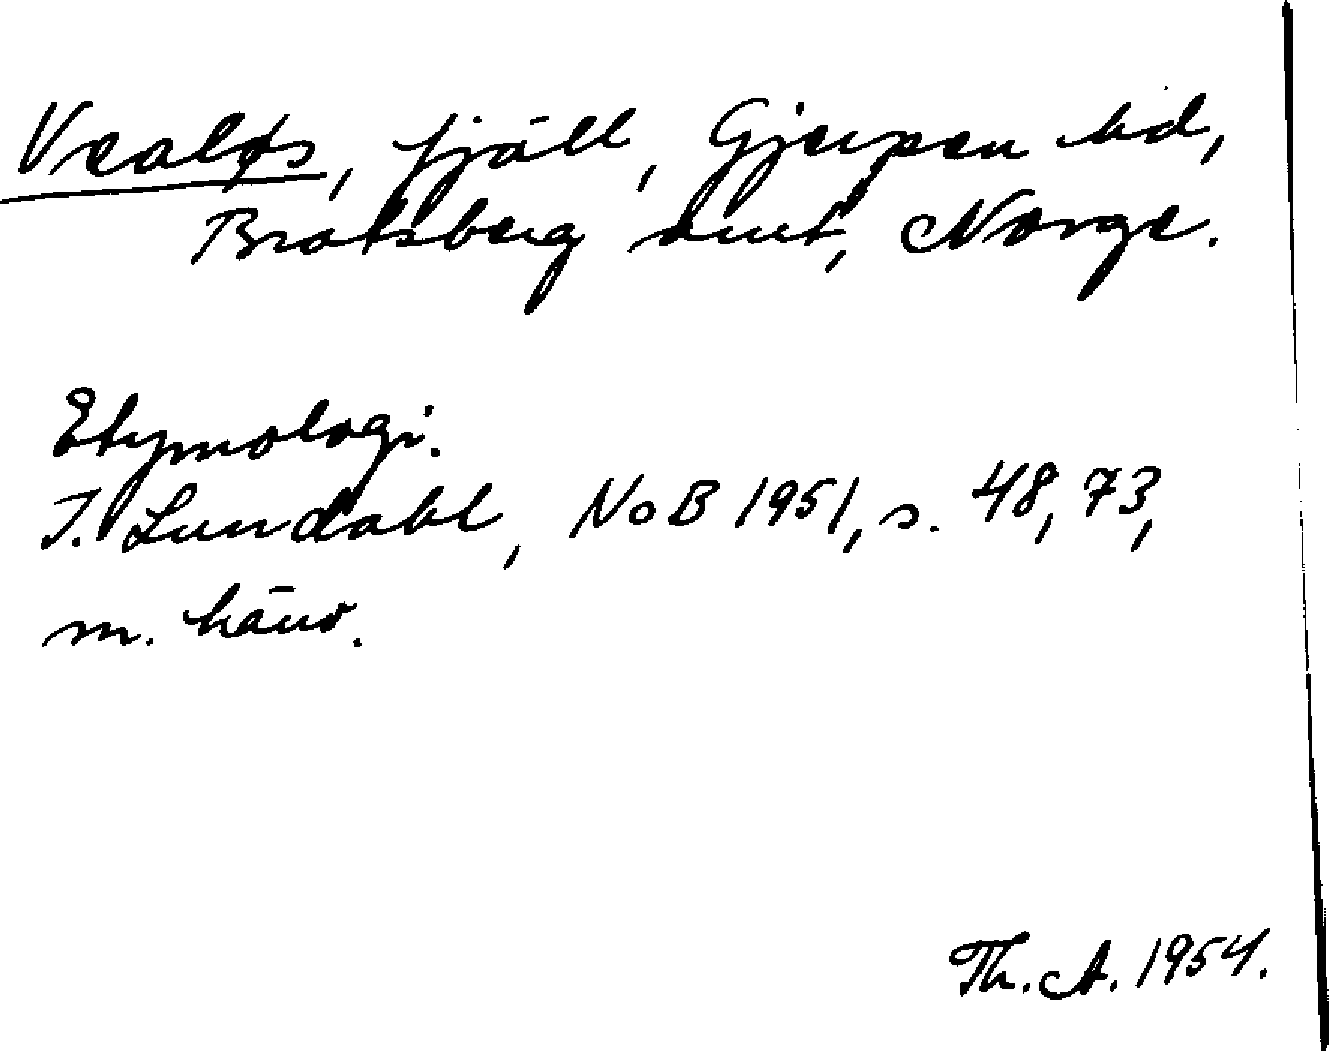 Vealøs, fjäll, Gjerpen hd,
Bratsberg amt, Norge.
Etymologi.
I. Lundahl, NoB 1951, s. 48, 73,
m. hänv.
Th. A. 1954.